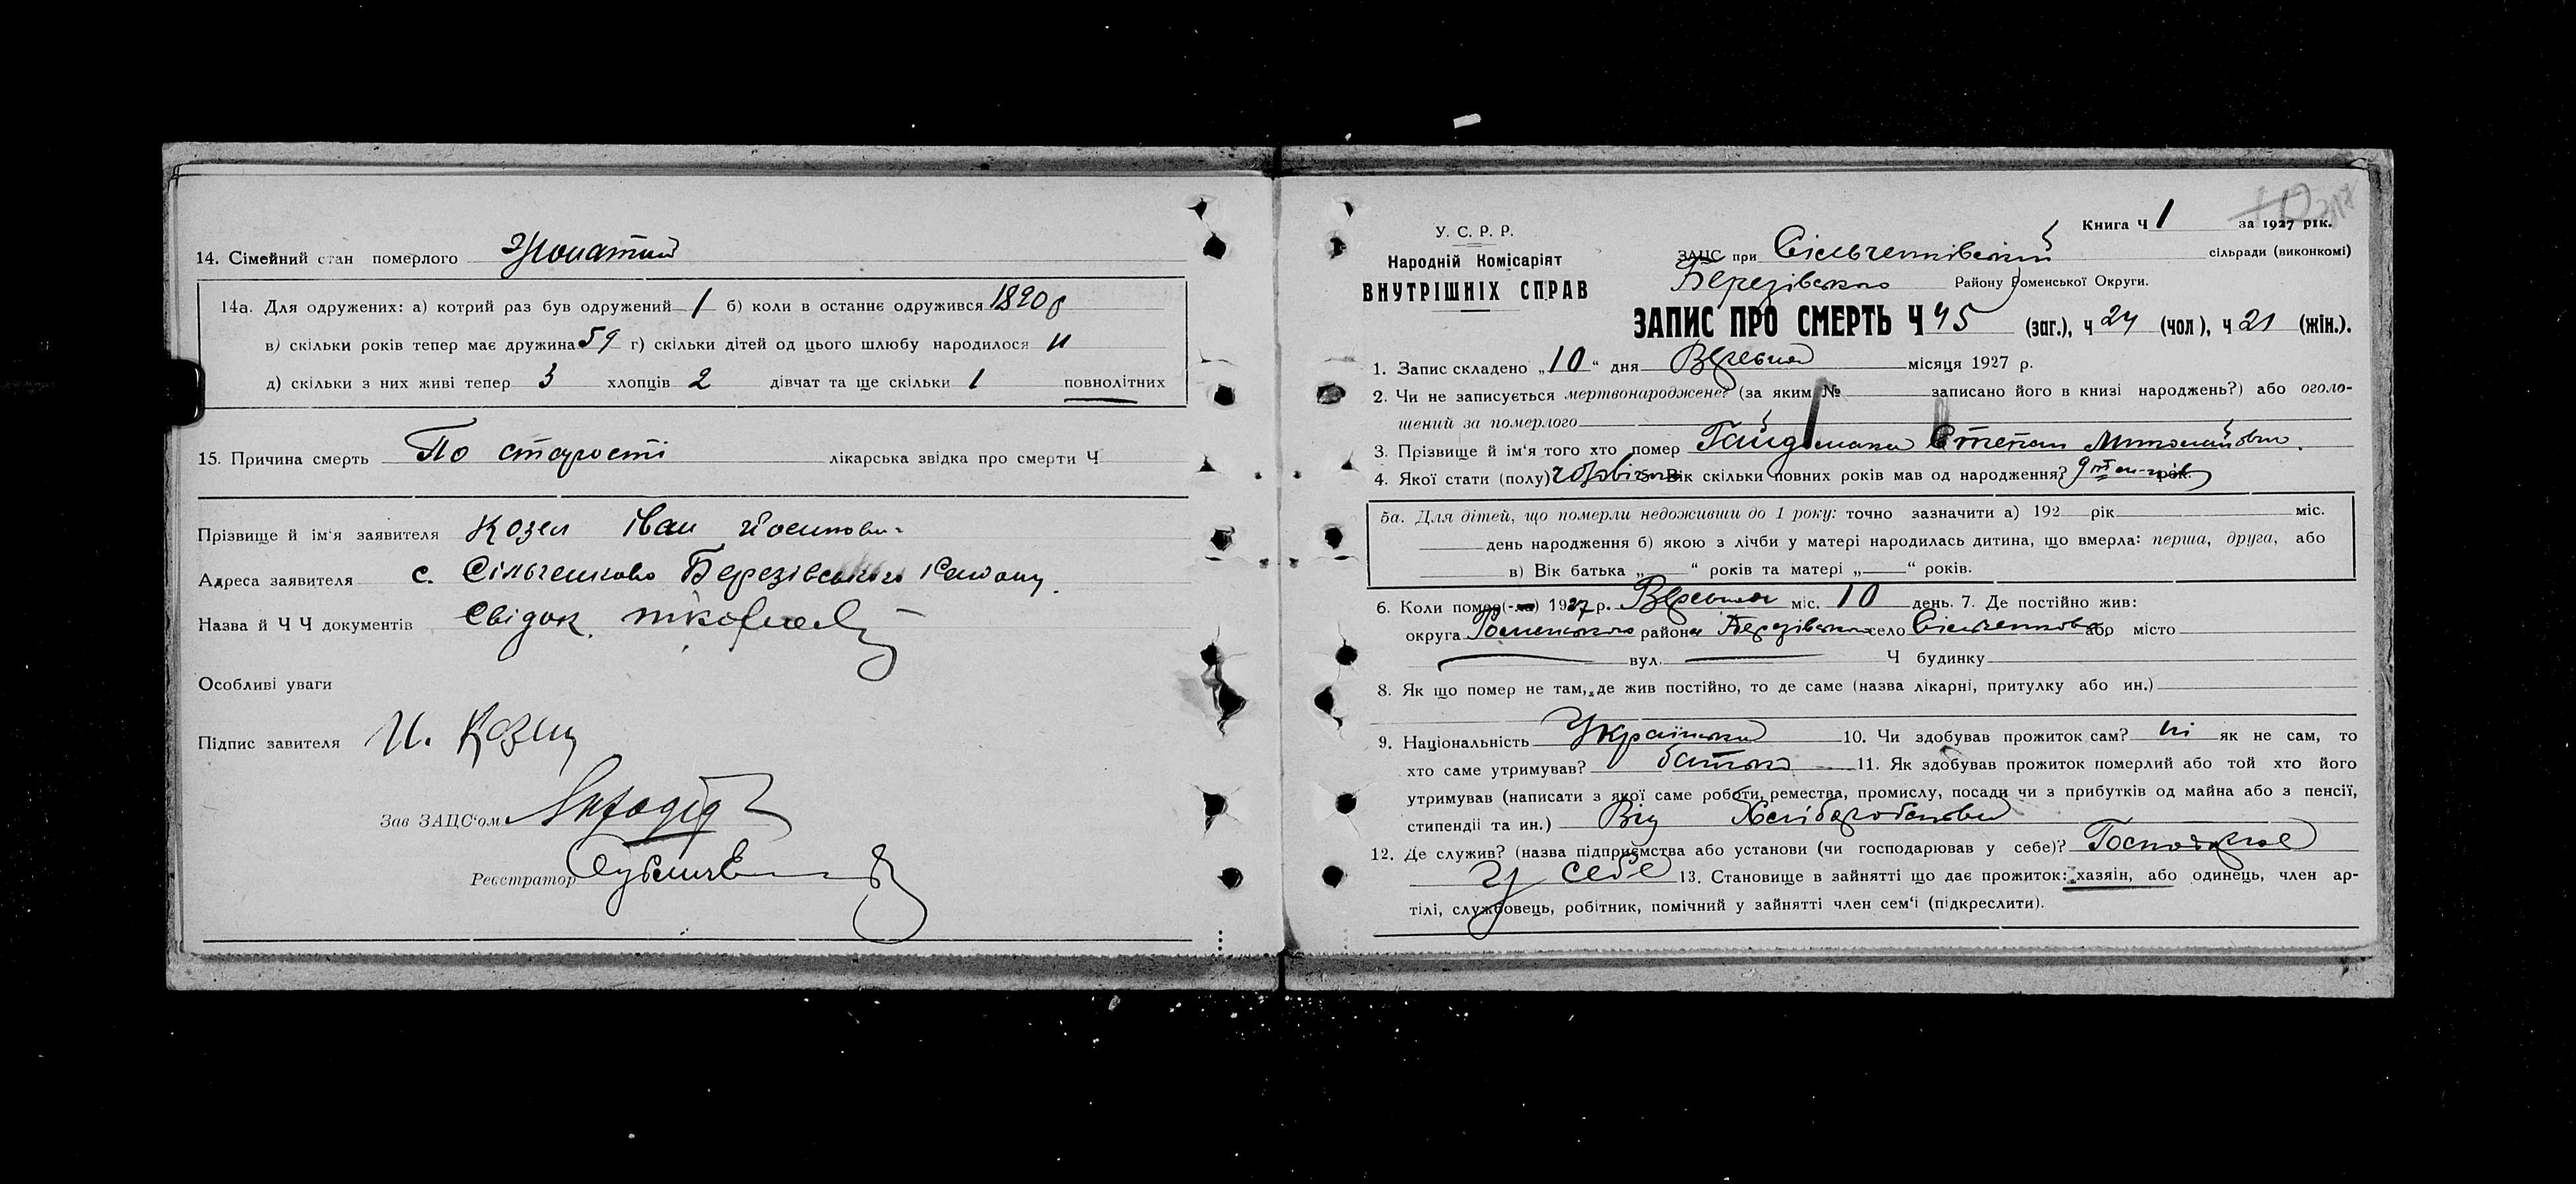 14. Сімейний стан померлого Жонатий
14а. Для одружених: а) котрий раз був одружений 1 б) коли в останнє одружився 1890 р
в) скільки років тепер має дружина 59 г) скільки дітей од цього шлюбу народилося 11
д) скільки з них живі тепер 3 хлопців 2 дівчат та ще скільки 1 повнолітних
15. Причина смерть По старості лікарська звідка про смерти Ч
Прізвище й ім'я заявителя Козел Іван Йосипови-
Адреса заявителя с. Сільченково Березівського Району.
Назва й Ч Ч документів Свідок
Особливі уваги
Підпис завителя И. Козел
Зав ЗАЦС'ом
Реєстратор
Книга Ч 1 за 1927 рік.
У. С. Р. Р.
Народній Комісаріят
ВНУТРІШНІХ СПРАВ
ЗАЦС при Сільченківській сільради (виконкомі)
Березівського Району Роменської Округи.
ЗАПИС ПРО СМЕРТЬ Ч 45 (заг.), ч 24 (чол), ч 21 (жін.).
1. Запис складено „10" дня Вересня місяця 1927 р.
2. Чи не записується мертвонароджене? (за яким № записано його в книзі народжень?) або оголо-
шений за померлого
3. Прізвище й ім'я того хто помер Гайдамака Степан Миколайович.
4. Якої стати (полу) чоловіча 5. Вік скільки повних років мав од народження? рок.
5а. Для дітей, що померли недоживши до 1 року: точно зазначити а) 192 рік міс.
день народження б) якою з лічби у матері народилась дитина, що вмерла: перша, друга, або
в) Вік батька „ " років та матері „ " років.
6. Коли помер(-ла) 1927 р. Вересня міс. 10 день. 7. Де постійно жив:
округа Роменського района Березівського село Сільченково або місто
вул. Ч будинку
8. Як що помер не там, де жив постійно, то де саме (назва лікарні, притулку або ин.)
9. Національність Українець 10. Чи здобував прожиток сам? ні як не сам, то
хто саме утримував? батько 11. Як здобував прожиток померлий або той хто його
утримував (написати з якої саме роботи, ремества, промислу, посади чи з прибутків од майна або з пенсії,
стипендії та ин.) Від Хліборобства
12. Де служив? (назва підприємства або установи (чи господарював у себе)? Господарював
у себе 13. Становище в зайнятті що дає прожиток: хазяін, або одинець, член ар-
тілі, службовець, робітник, помічний у зайнятті член сем'і (підкреслити).